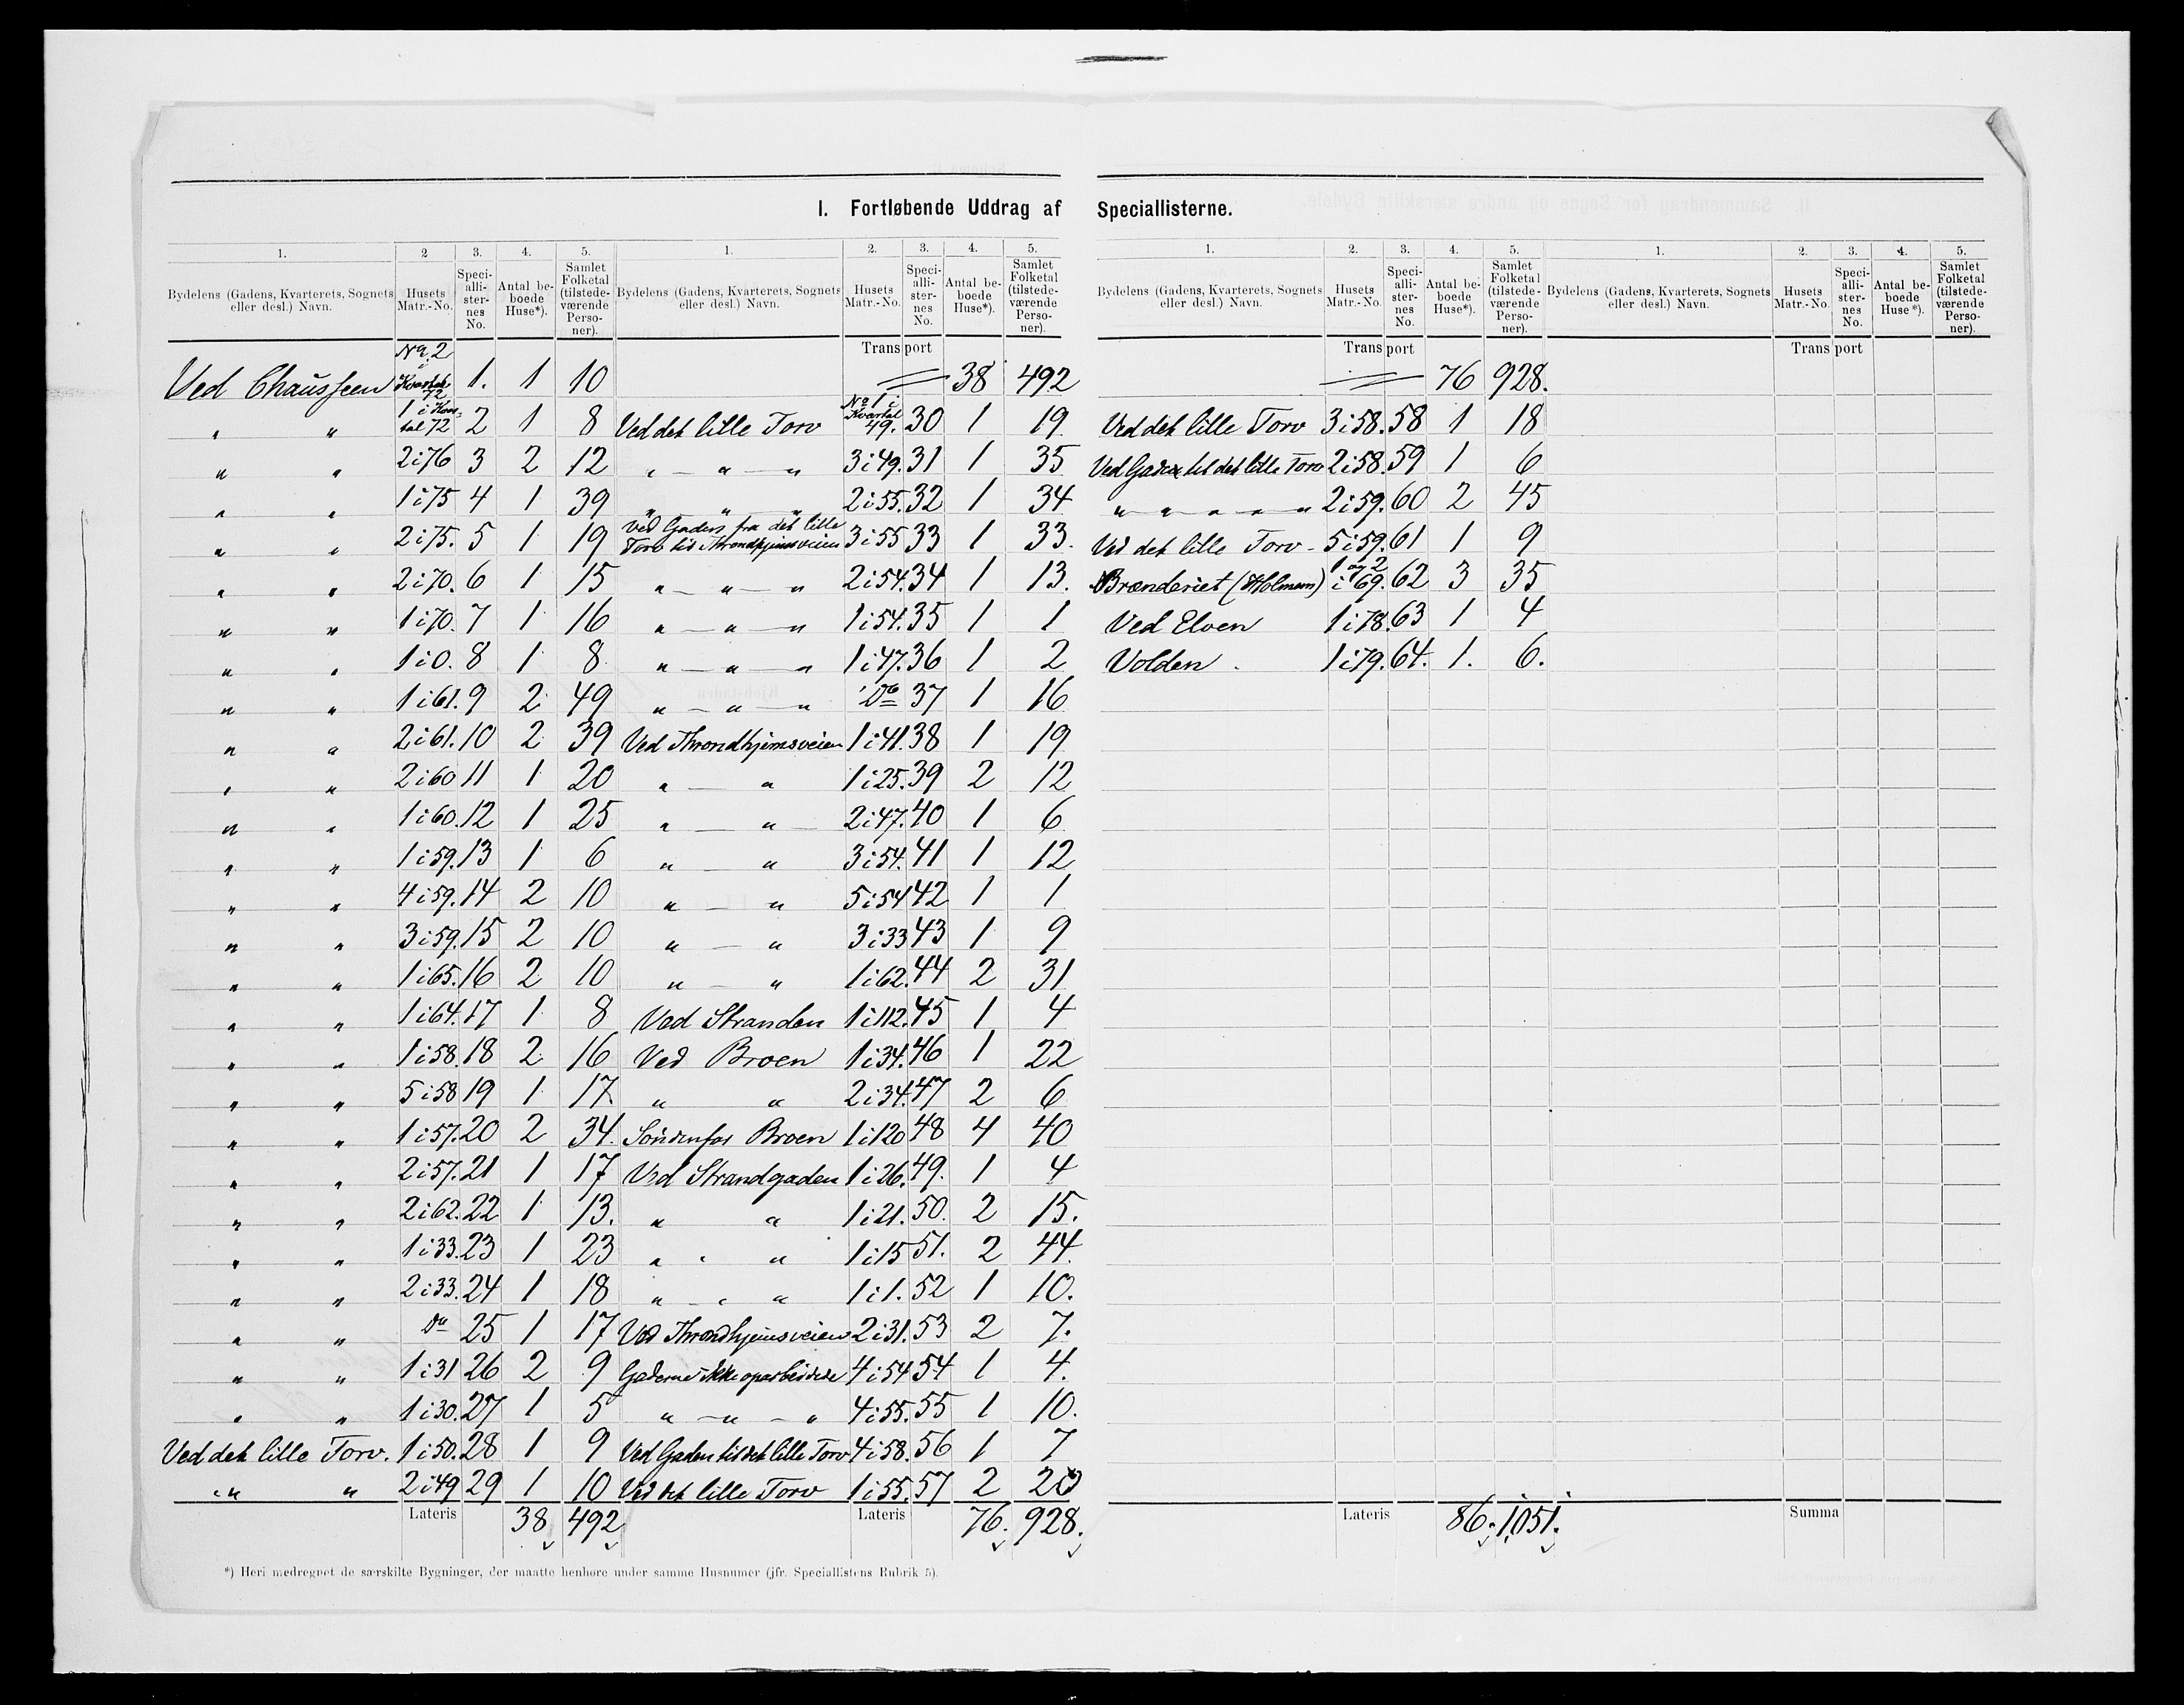 I. Fortløbende Uddrag af Speciallisterne.
1. 2 3. 4. 5. 1. 2. 3. 4. 5. 1. 2. 3. 4. 5. 1. 2. 3. 4. 5.
Bydelens (Gadens, Kvarterets, Sognets eller desl.) Navn. Husets Matr.-No. Speciallisternes No. Antal beboede Huse*). Samlet Folketal (tilstedeværende Personer).
Bydelens (Gadens, Kvarterets, Sognets eller desl.) Navn. Husets Matr.-No. Speciallisternes No. Antal beboede Huse*). Samlet Folketal (tilstedeværende Personer).
Bydelens (Gadens, Kvarterets, Sognets eller desl.) Navn. Husets Matr.-No. Speciallisternes No. Antal beboede Huse*). Samlet Folketal (tilstedeværende Personer).
Bydelens (Gadens, Kvarterets, Sognets eller desl.) Navn. Husets Matr.-No. Speciallisternes No. Antal beboede Huse*). Samlet Folketal (tilstedeværende Personer).
Ved Chausseen No 2 i Kvartal 72 1. 1 10
" " 1 i Kvartal 72 2 1 8
" " 2 i 76 3 2 12
" " 1 i 75 4 1 39
" " 2 i 75. 5 1 19
" " 2 i 70. 6 1 15
" " 1 i 70. 7 1 16
" " 1 i 0. 8 1 8
" " 1 i 61. 9 2 49
" " 2 i 61. 10 2 39
" " 2 i 60 11 1 20
" " 1 i 60. 12 1 25
" " 1 i 59. 13 1 6
" " 4 i 59. 14 2 10
" " 3 i 59. 15 2 10
" " 1 i 65. 16 2 10
" " 1 i 64. 17 1 8
" " 1 i 58. 18 2 16
" " 5 i 58 19 1 17
" " 1 i 57. 20 2 34.
" " 2 i 57. 21 1 17
" " 2 i 62. 22 1 13.
" " 1 i 33. 23 1 23
" " 2 i 33. 24 1 18
" " Do 25 1 17
" " 1 i 31 26 2 9
" " 1 i 30. 27 1 5
Ved det lille Torv. 1 i 50. 28 1 9
" " " 2 i 49 29 1 10
Lateris 38 492
Transport 38 492
Ved det lille Torv No 1 i Kvartal 49. 30 1 19
" — " — " 3 i 49. 31 1 35
" " " 2 i 55. 32 1 34
Ved Gaden fra det lille Torv til Throndhjemsveien 3 i 55 33 1 33.
" — " — " 2 i 54. 34 1 13.
" — " — " 1 i 54. 35 1 1
" — " — " 1 i 47. 36 1 2
" — " — " Do 37 1 16
Ved Throndhjemsveien 1 i 41. 38 1 19
" — " 1 i 25. 39 2 12
" — " 2 i 47. 40 1 6
" — " 3 i 54. 41 1 12
" — " 5 i 54 42 1 1
" — " 3 i 33 43 1 9
" — " 1 i 62. 44 2 31
Ved Stranden 1 i 112. 45 1 4
Ved Broen 1 i 34. 46 1 22
" " 2 i 34. 47 2 6
Söndenfor Broen 1 i 120 48 4 40
Ved Strandgaden 1 i 26. 49. 1 4
" " 1 i 21. 50. 2 15.
" " " 1 i 15 51. 2 44.
" " " 1 i 1. 52 1 10.
Ved Throndhjemsveien 2 i 31. 53 2 7.
Gaderne ikke oparbeidede 4 i 54 54 1 4.
" — " — " 4 i 55. 55 1 10.
Ved Gaden til det lille Torv 4 i 58. 56 1 7
Ved det lille Torv 1 i 55. 57 2 20
Lateris 76. 928.
Transport 76 928.
Ved det lille Torv 3 i 58. 58 1 18
Ved Gaden til det lille Torv 2 i 58. 59 1 6
" — " — " — " — " 2 i 59. 60 2 45
Ved det lille Torv - 5 i 59. 61 1 9
Brænderiet (Holmen) 1 og 2 i 69. 62 3 35
Ved Elven 1 i 78. 63 1 4
Volden. 1 i 79. 64. 1. 6.
Lateris 86. 1,051.
Transport
Summa
*) Heri medregnet de særskilte Bygninger, der maatte henhøre under samme Husnumer (jfr. Speciallistens Rubrik 5).